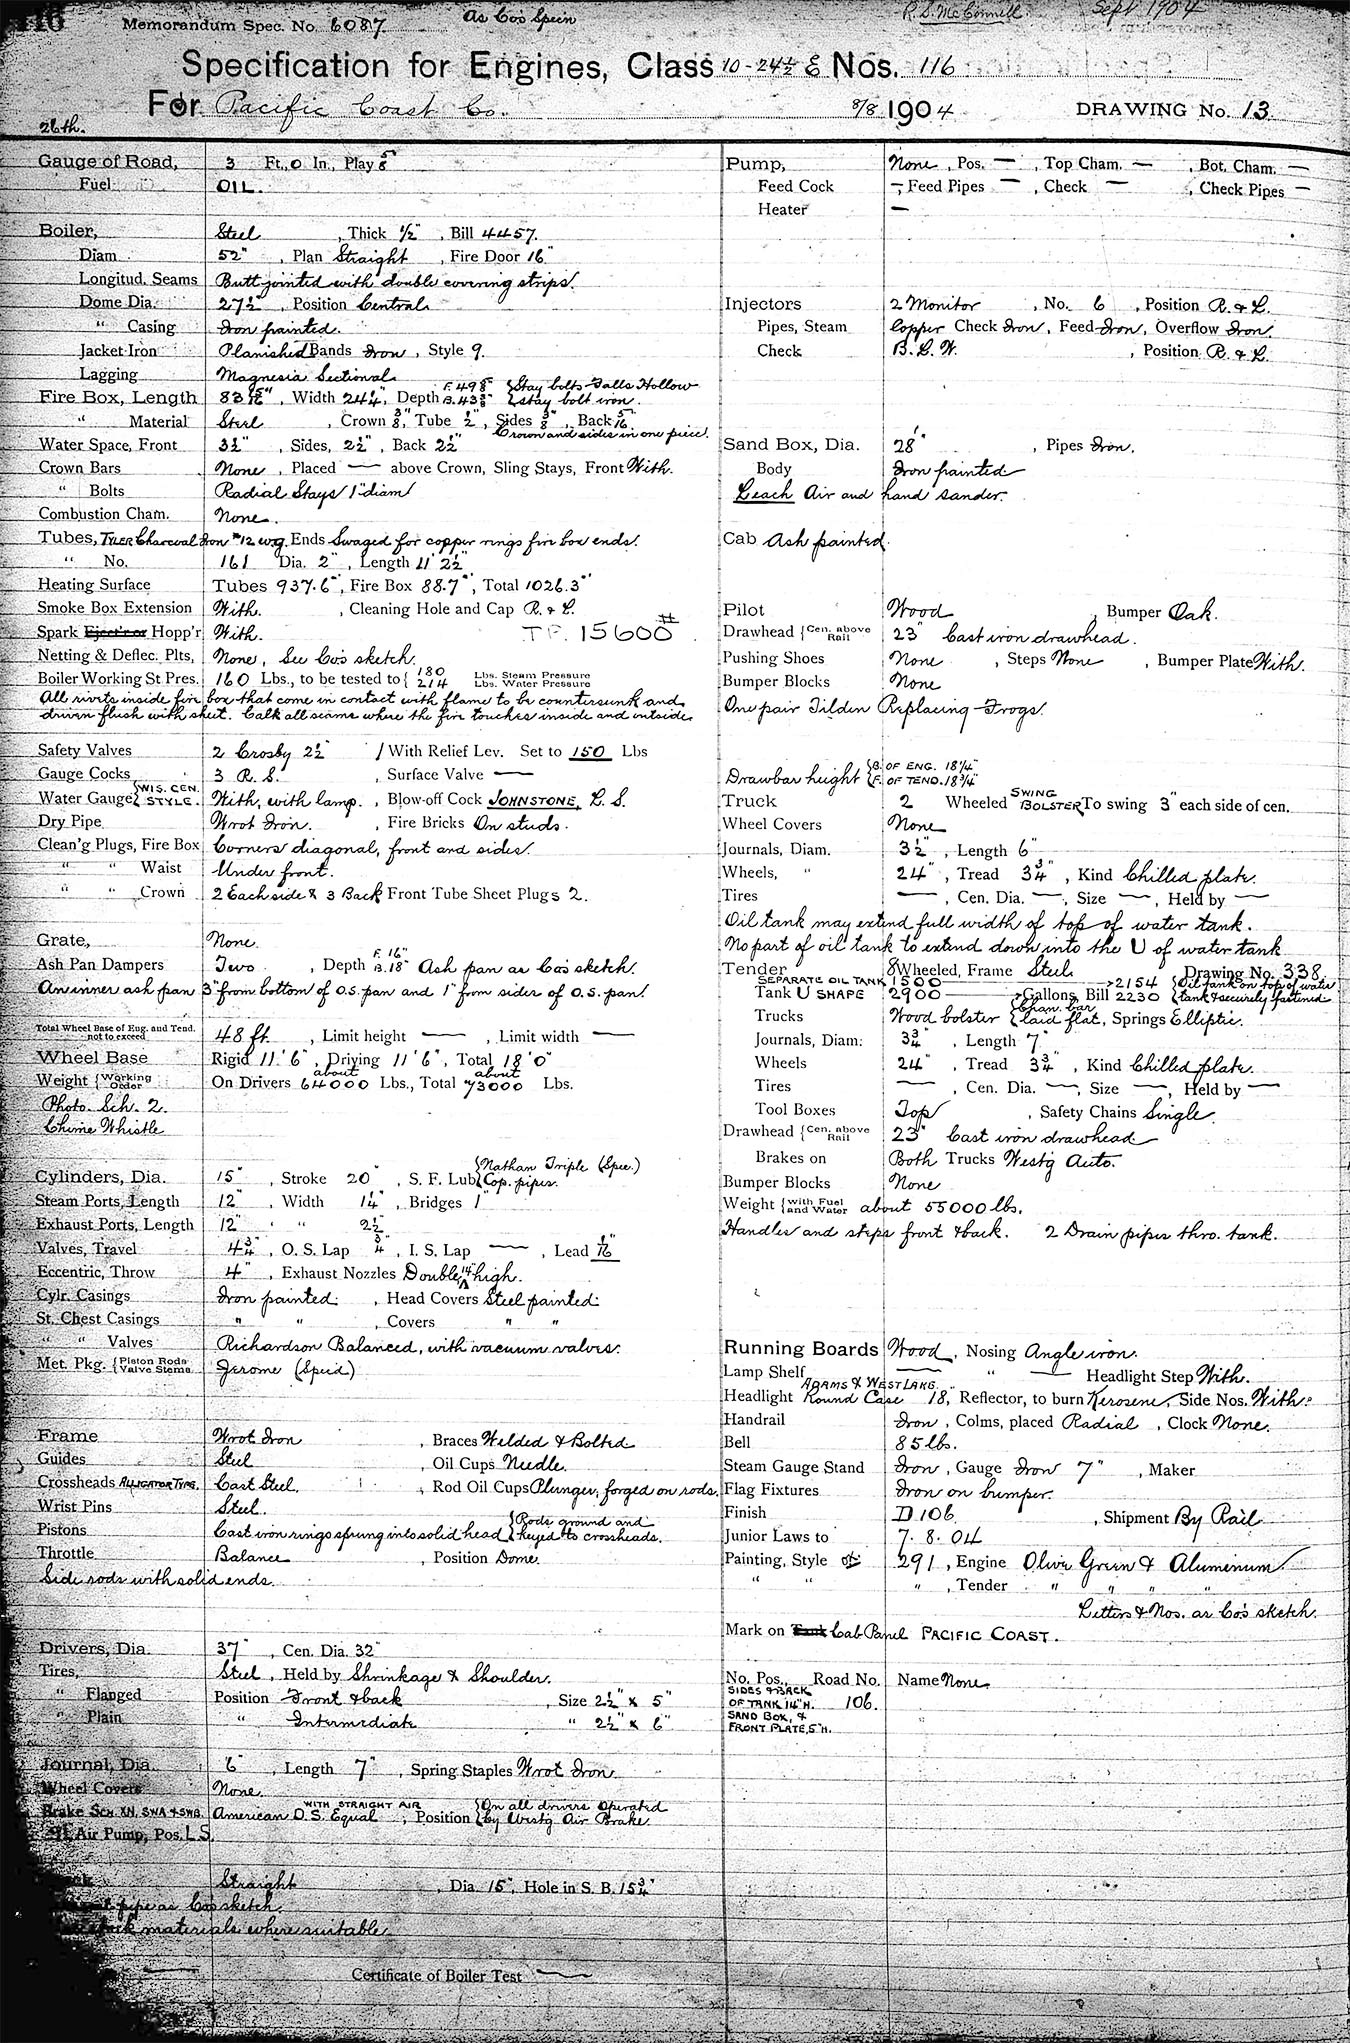 116
Memorandum Spec. No. 6087.
As Co's Specn
R. S. McConnill.
Sept 1904
Specification for Engines, Class 10-24½ E Nos. 116
For Pacific Coast Co.
8/8 1904
DRAWING No. 13.
26th.
Gauge of Road, 3 Ft., 0 In., Play ⅝
Fuel OIL.
Boiler, Steel , Thick ½" , Bill 4457.
Diam 52" , Plan Straight , Fire Door 16"
Longitud. Seams Butt jointed with double covering strips.
Dome Dia. 27½" , Position Central.
" Casing Iron painted.
Jacket Iron Planished Bands Iron , Style 9.
Lagging Magnesia Sectional.
Fire Box, Length 83 15/16" , Width 24¼", Depth F. 49⅝" B. 43⅜" { Stay bolts Falls Hollow stay bolt iron.
" Material Steel , Crown ⅜", Tube ½", Sides ⅜" , Back 5/16"
Crown and sides in one piece.
Water Space, Front 3½" , Sides, 2½" , Back 2½"
Crown Bars None , Placed — above Crown, Sling Stays, Front With.
" Bolts Radial Stays 1" diam
Combustion Cham. None.
Tubes, TYLER Charcoal Iron #12 w.g. Ends Swaged for copper rings fire box ends.
" No. 161 Dia. 2" , Length 11' 2½"
Heating Surface Tubes 937.6 , Fire Box 88.7 , Total 1026.3
Smoke Box Extension With. , Cleaning Hole and Cap R. & L.
Spark Eject'r or Hopp'r With. T.P. 15600#
Netting & Deflec. Plts, None, See Co's sketch.
Boiler Working St Pres. 160 Lbs., to be tested to { 180 Lbs. Steam Pressure 214 Lbs. Water Pressure
All rivets inside fire box that come in contact with flame to be countersunk and
driven flush with sheet. Calk all seams where the fire touches inside and outside.
Safety Valves 2 Crosby 2½" / With Relief Lev. Set to 150 Lbs
Gauge Cocks 3 R. S. , Surface Valve —
Water Gauge { WIS. CEN. STYLE. With, with lamp. , Blow-off Cock JOHNSTONE, L. S.
Dry Pipe Wrot Iron. , Fire Bricks On studs.
Clean'g Plugs, Fire Box Corners diagonal, front and sides.
" " Waist Under front.
" " Crown 2 Each side & 3 Back Front Tube Sheet Plugs 2.
Grate, None.
Ash Pan Dampers Two , Depth F. 16" B. 18" Ash pan as Co's sketch.
An inner ash pan 3" from bottom of O.S. pan and 1" from sides of O.S. pan.
Total Wheel Base of Eng. and Tend. not to exceed 48 ft. , Limit height — , Limit width —
Wheel Base Rigid 11' 6" , Driving 11' 6", Total 18' 0"
Weight { Working Order On Drivers about 64000 Lbs., Total about 73000 Lbs.
Photo. Sch. 2.
Chime Whistle
Cylinders, Dia. 15" , Stroke 20" , S. F. Lub { Nathan Triple (Spec.) Cop. pipes.
Steam Ports, Length 12" , Width 1¼" , Bridges 1"
Exhaust Ports, Length 12" " 2½"
Valves, Travel 4¾" , O. S. Lap ¾" , I. S. Lap — , Lead 1/16"
Eccentric, Throw 4" , Exhaust Nozzles Double, 14" high.
Cylr. Casings Iron painted. , Head Covers Steel painted.
St. Chest Casings " " , Covers " "
" " Valves Richardson Balanced, with vacuum valves.
Met. Pkg. { Piston Rods Valve Stems Jerome (Specd)
Frame Wrot Iron , Braces Welded & Bolted
Guides Steel , Oil Cups Needle.
Crossheads ALLIGATOR TYPE. Cast Steel. , Rod Oil Cups Plunger, forged on rods.
Wrist Pins Steel.
Pistons Cast iron rings sprung into solid head { Rods ground and keyed to crossheads.
Throttle Balance , Position Dome.
Side rods with solid ends.
Drivers, Dia. 37" , Cen. Dia. 32"
Tires, Steel , Held by Shrinkage & Shoulder.
" Flanged Position Front & back , Size 2½" x 5"
" Plain " Intermediate " 2½" x 6"
Journal, Dia. 6" , Length 7" , Spring Staples Wrot Iron
Wheel Covers None.
Brake SCH. XN, SWA & SWB. American O.S. Equal WITH STRAIGHT AIR , Position { On all drivers operated by Westg Air Brake.
9½ Air Pump, Pos. L.S.
Straight , Dia. 15", Hole in S. B. 15¾"
pipe as Co's sketch.
stock materials where suitable.
Certificate of Boiler Test —
Pump, None , Pos. — , Top Cham. — , Bot. Cham. —
Feed Cock —, Feed Pipes — , Check — , Check Pipes —
Heater —
Injectors 2 Monitor , No. 6 , Position R. & L.
Pipes, Steam Copper Check Iron, Feed Iron, Overflow Iron.
Check B. L. W. , Position R. & L.
Sand Box, Dia. 28" , Pipes Iron.
Body Iron painted
Leach Air and hand sander.
Cab Ash painted.
Pilot Wood , Bumper Oak.
Drawhead { Cen. above Rail 23" Cast iron drawhead.
Pushing Shoes None , Steps None , Bumper Plate With.
Bumper Blocks None
One pair Tilden Replacing Frogs.
Drawbar height { B. OF ENG. 18¼" F. OF TEND. 18¾"
Truck 2 Wheeled SWING BOLSTER To swing 3" each side of cen.
Wheel Covers None
Journals, Diam. 3½" , Length 6"
Wheels, " 24" , Tread 3¾" , Kind Chilled plate.
Tires — , Cen. Dia. —, Size —, Held by —
Oil tank may extend full width of top of water tank.
No part of oil tank to extend down into the U of water tank
Tender 8 Wheeled, Frame Steel Drawing No. 338.
SEPARATE OIL TANK 1500 — 2154 { Oil tank on top of water
Tank U SHAPE 2900 — Gallons, Bill 2230 tank & securely fastened
Trucks Wood bolster { Chan. bar laid flat, Springs Elliptic.
Journals, Diam. 3¾" , Length 7"
Wheels 24" , Tread 3¾" , Kind Chilled plate.
Tires — , Cen. Dia. —, Size —, Held by —
Tool Boxes Top , Safety Chains Single.
Drawhead { Cen. above Rail 23" Cast iron drawhead
Brakes on Both Trucks Westg Auto.
Bumper Blocks None
Weight { with Fuel and Water about 55000 lbs.
Handles and steps front & back. 2 Drain pipes thro. tank.
Running Boards Wood , Nosing Angle iron.
Lamp Shelf — " — Headlight Step With.
Headlight ADAMS & WESTLAKE Round Case 18", Reflector, to burn Kerosene, Side Nos. With.
Handrail Iron , Colms, placed Radial , Clock None.
Bell 85 lbs.
Steam Gauge Stand Iron , Gauge Iron 7" , Maker
Flag Fixtures Iron on bumper.
Finish D 106. , Shipment By Rail
Junior Laws to 7. 8. 04
Painting, Style of 291 , Engine Olive Green & Aluminum
" " " , Tender " " " "
Letters & Nos. as Co's sketch.
Mark on Tank Cab Panel PACIFIC COAST.
No. Pos., Road No. Name None
SIDES & BACK
OF TANK 14" H. 106.
SAND BOX, &
FRONT PLATE, 5" H.